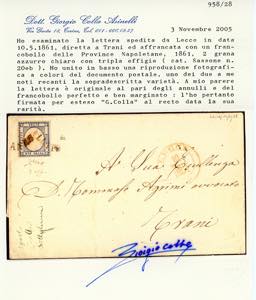 958/28
Dott. Giorgio Colla Asinelli
3 Novembre 2005
Ho esaminato la lettera spedita da Lecce in data
10.5.1861, diretta a Trani ed affrancata con un fran-
cobollo delle Province Napoletane, 1861, 2 grana
azzurro chiaro con triplo effigie ( cat. Sassone n.
20eb ). Ho unito in basso una riproduzione fotografi-
ca a colori del documento postale, uno dei due a me
noti recanti la sopradescritta varietà. A mio parere
la lettera è originale al pari degli annulli e del
francobollo perfetto e ben marginato : l'ho pertanto
firmata per esteso "G.Colla" al recto data la sua
rarità.
A Sua Eccellenza
D. Tommaso Agrimi avvocato
Trani
Giorgio Colla